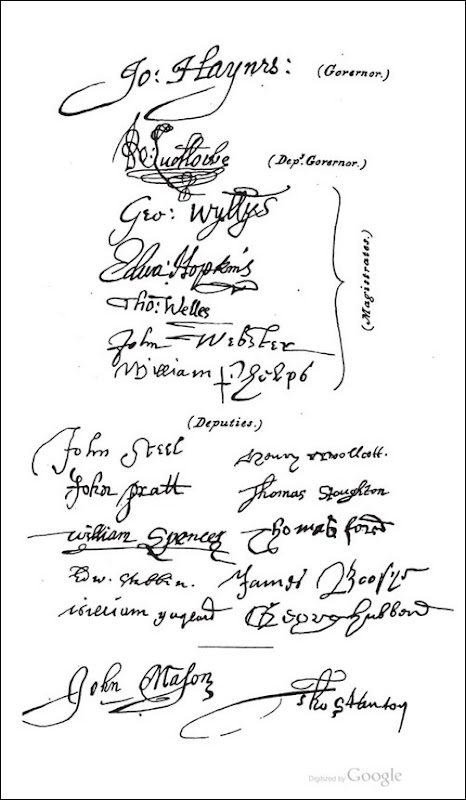 Jo: Haynes: (Governor.)
Ro: Ludlowe (Dep.t Governor.)
Geo: Wyllys
Edwa: Hopkins
Tho: Welles
(Magistrates.)
John Webster
William Phelps
(Deputies.)
John Steel Henry Wollcott.
John pratt Thomas Stoughton
William Spencer Thomas ford
Edw. Stebbin. James
William George Hubbard
John Mason Tho Stanton
Digitized by Google